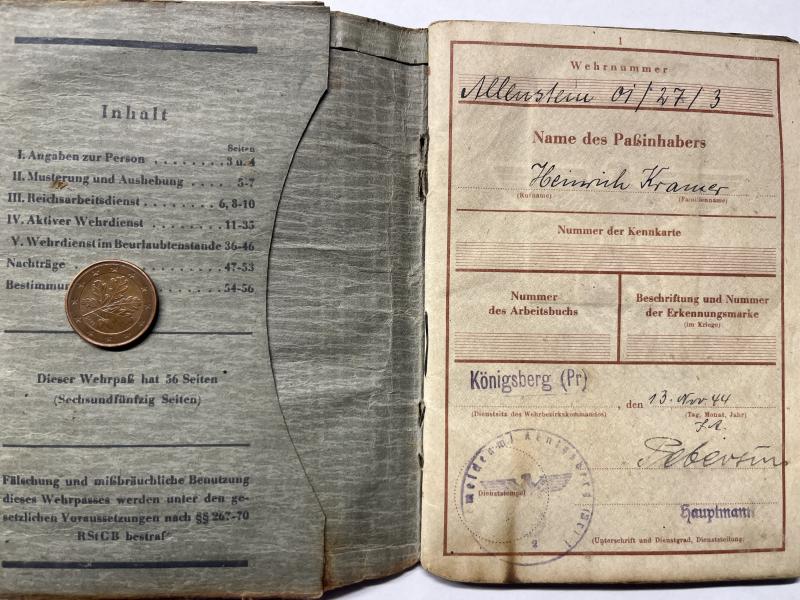 Inhalt
Seiten
I. Angaben zur Person ........ 3 u. 4
II. Musterung und Aushebung .... 5-7
III. Reichsarbeitsdienst ........ 6, 8-10
IV. Aktiver Wehrdienst ........ 11-35
V. Wehrdienst im Beurlaubtenstande 36-46
Nachträge ........ 47-53
Bestimmu ........ 54-56
Dieser Wehrpaß hat 56 Seiten
(Sechsundfünfzig Seiten)
Fälschung und mißbräuchliche Benutzung
dieses Wehrpasses werden unter den ge-
setzlichen Voraussetzungen nach §§ 267-70
RStGB bestraf
1
Wehrnummer
Allenstein 01/27/3
Name des Paßinhabers
Heinrich Kramer
(Rufname) (Familienname)
Nummer der Kennkarte
Nummer
des Arbeitsbuchs
Beschriftung und Nummer
der Erkennungsmarke
(im Kriege)
Königsberg (Pr)
, den 13. Nov 44
(Dienstsitz des Wehrbezirkskommandos) (Tag, Monat, Jahr)
Dienststempel
meldeamt Königsberg
2
Hauptmann
(Unterschrift und Dienstgrad, Dienststellung)